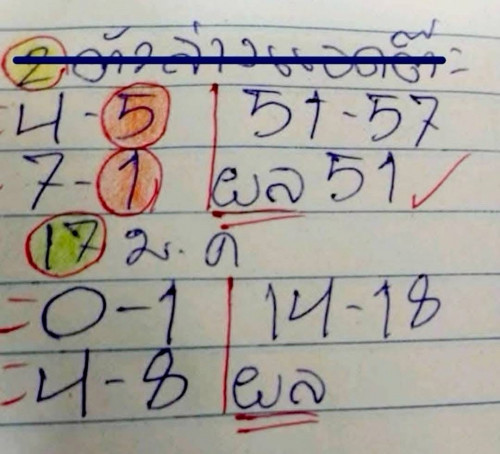 2 ตัวล่างแอดติ๊ะ
4-5 51-57
7-1 ผล 51 ✓
17 ม.ค
=0-1 14-18
=4-8 ผล